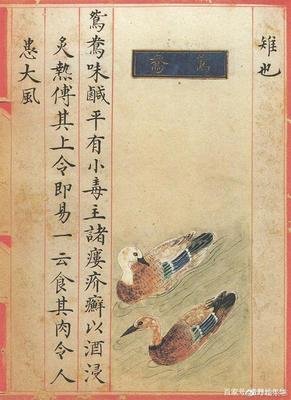 雉也
鴛鴦
鴛鴦味鹹平有小毒主諸瘻疥癬以酒浸
炙熱傅其上令即易一云食其肉令人
患大風
百家号